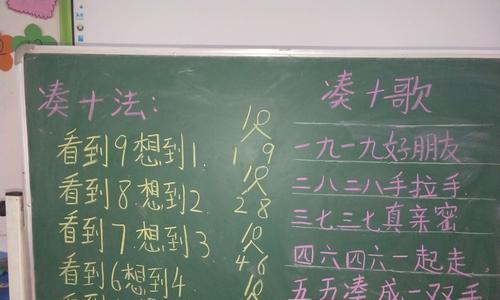 凑十法:
看到9想到1.
看到8想到2.
看到7.想到3.
看到6想到4.
10
1 9
10
2 8
10
4 6
10
凑十歌
一九一九好朋友
二八二八手拉手
三七三七真亲密
四六四六一起走
五五凑成一双手